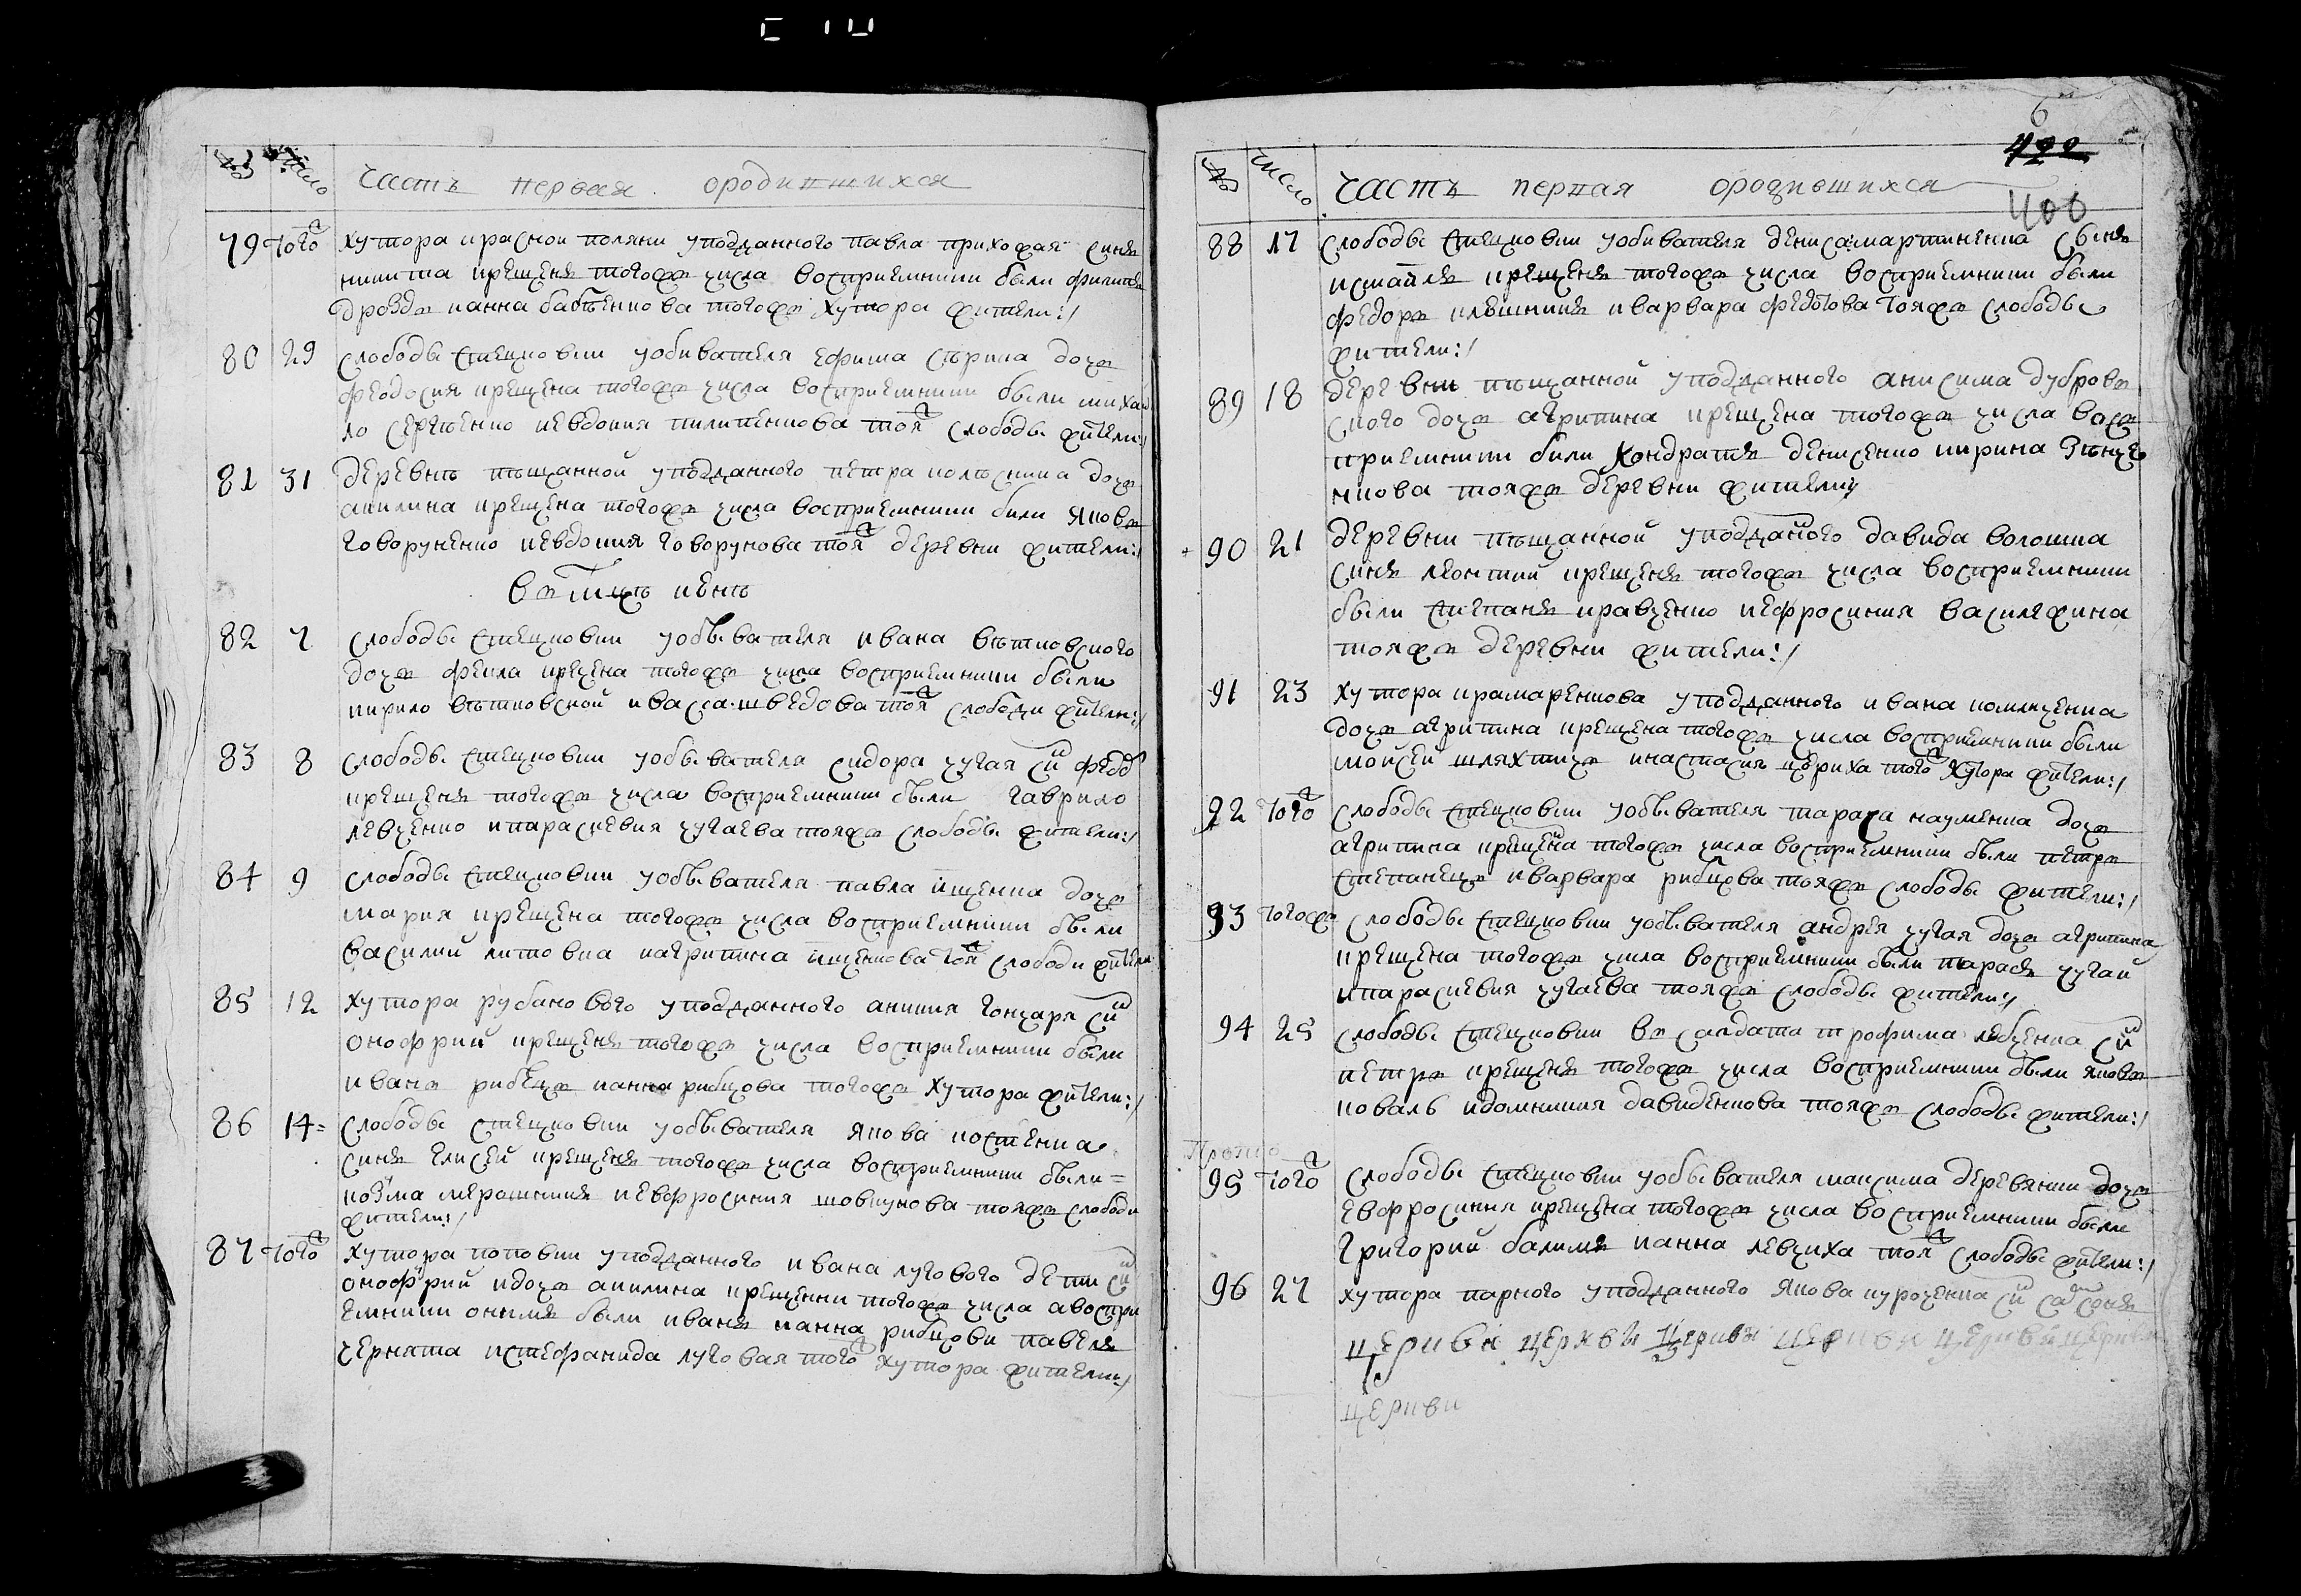 № число Часть первая ородившихся
79 Того ж хутора красной поляни уподданного павла приходка синъ
никита крещенъ тогожъ числа восприемники были филипъ
дроздъ ианна бабѣенкова тогожъ хутора жители:/
80 29 слободы стецковки уобивателя ефима сърика дочъ
феодосия крещена тогожъ числа восприемники были михай
ло сергѣенко иевдокия пилипенкова тояж слободы жители:/
81 31 деревнѣ пѣщанной уподданного петра колѣсника дочъ
акилина крещена тогожъ числа восприемники били яковъ
говоруненко иевдокия говорунова тояж деревни жители:/
въ мцѣ июнѣ
82 7 слободы стецковки уобывателя ивана вѣтковского
дочъ фекла крещена тогожъ числа восприемники были
кирило вѣтковской и васса шведова тояж слободи жители:/
83 8 слободы стецковки уобывателя сидора чугая снъ федоръ
крещенъ тогожъ числа восприемники были гаврило
левченко ипараскевия чугаева тояжъ слободы жители:/
84 9 слободы стецковки уобывателя павла ищенка дочъ
мария крещена тогожъ числа восприемники были
василий литовка иагрипина ищенкова тояж слободи жители
85 12 хутора рубанового уподданного аникия гончаря снъ
онофрий крещенъ тогожъ числа восприемники были
иванъ рибецъ ианна рибцова тогожъ хутора жители:/
86 14 слободы стецковки уобывателя якова костенка
синъ елисей крещенъ тогожъ числа восприемники были
козма мерошникъ иевфросиния шовкунова тояжъ слободи
жители:/
87 того ж хутора поповки уподданного ивана лугового дети снъ
онофрий идочъ акилина крещенни тогожъ числа авоспри
емники онимъ были иванъ ианна рибцови павелъ
чернята истефанида луговая тогож хутора жители:/
6
422
406
№ число Часть первая ородившихся
88 17 слободы стецковки уобивателя дениса мартиненка сынъ
исмаилъ крещенъ тогожъ числа восприемники были
федоръ клѣшникъ иварвара федотова тояжъ слободы
жители:/
89 18 деревнѣ пѣщанной уподданного анисима дубровъ
ского дочъ агрипина крещена тогожъ числа восъ
приемники били кондратъ денисенко иирина зѣнче
нкова тояжъ деревни жители:/
90 21 деревни пѣщанной уподданого давида волошка
синъ леонтий крещенъ тогожъ числа восприемники
были степанъ кравченко иефросиния василежина
тояжъ деревни жители:/
91 23 хутора крамаренкова уподданного ивана комличенка
дочъ агрипина крещена тогожъ числа восприемники были
мойсей шляхтичъ инастасия цериха тогож хутора жители:/
92 Того ж слободы стецковки уобывателя тараса науменка дочъ
агрипина крещена тогожъ числа восприемники были петръ
степанецъ иварвара рибцова тояжъ слободы жители:/
93 Тогожъ слободы стецковки уобывателя андрея чугая дочъ агрипина
крещена тогожъ числа восприемники были тарасъ чугай
ипараскевия чугаева тояжъ слободы жители:/
94 25 слободы стецковки въ салдата трофима любченка снъ
петръ крещенъ тогожъ числа восприемники были яковъ
коваль идомникия давиденкова тояжъ слободы жители:/
95 того ж слободы стецковки уобывателя максима деревянки дочъ
евфросиния крещена тогожъ числа восприемники были
григорий балимъ ианна левчиха тояж слободы жители:/
96 27 хутора парного уподданного якова куроченка снъ самсонъ
церкви церкви церкви церкви церкви церкви
церкви